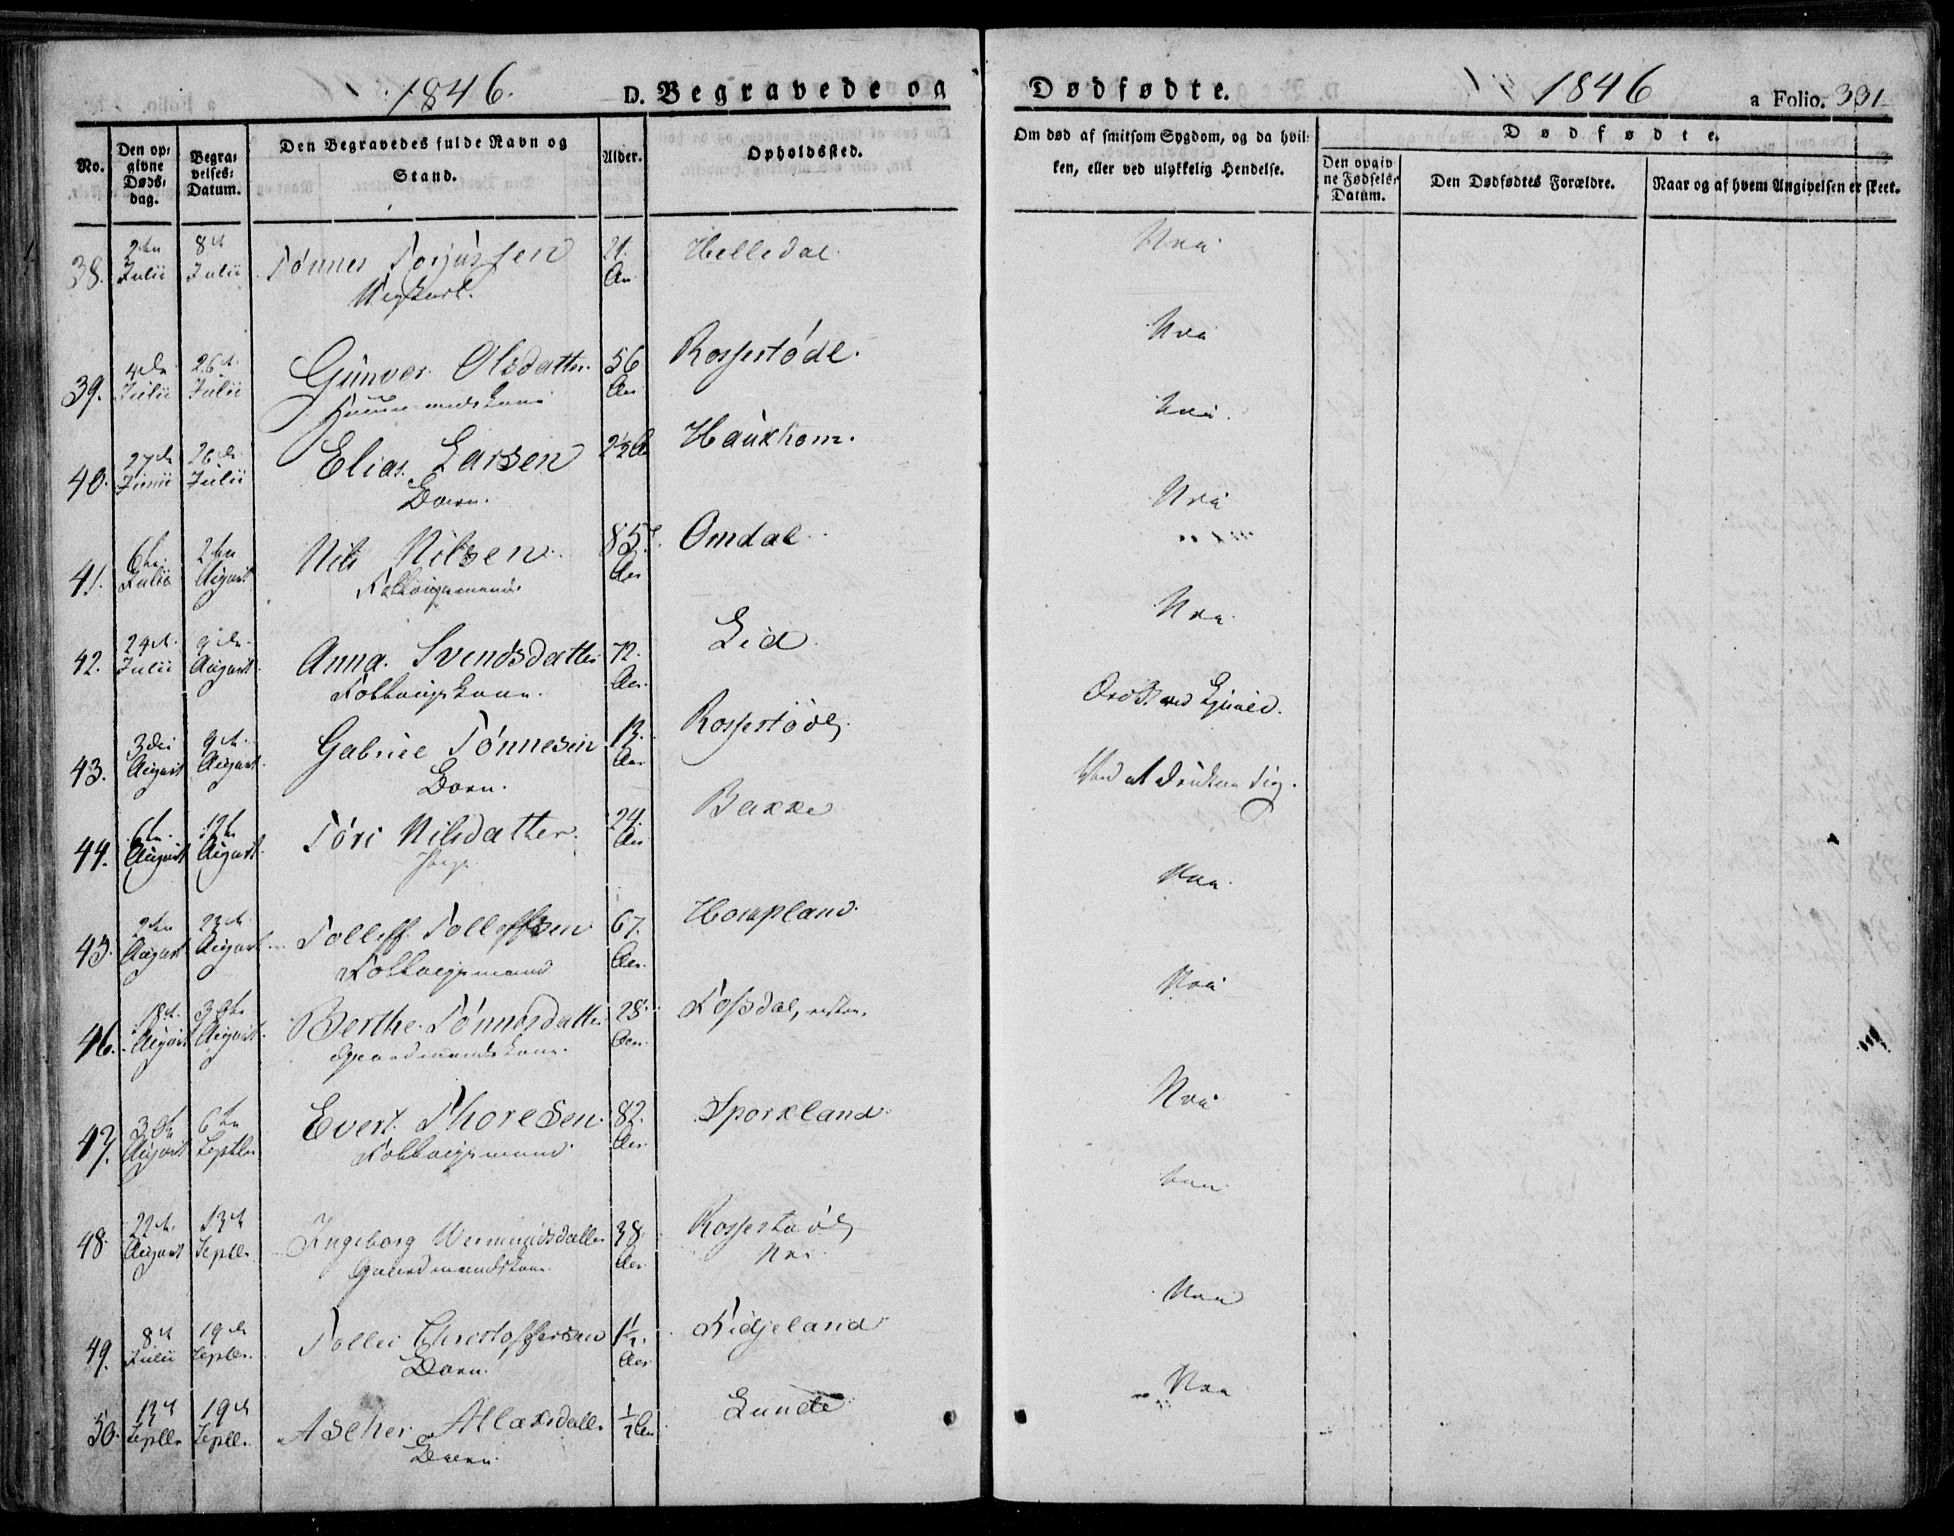 1846.
D. Begravede og
No.
Den op-
givne
Døds-
dag.
Begra-
velses-
Datum.
Den Begravedes fulde Navn og
Stand.
Alder.
Opholdssted.
38. 2den Julii 8de Julii Tønnes Torjussen 21. Aar Helledal
39. 4de Julii 26de Julii Gunvor Olsdatter 56 Aar Rossestødl.
40. 27de Junii 26de Julii Elias Larsen 2½ A Hauxkom.
Barn.
41. 6te Julii 2den August Nils Nilsen 85. Aar Omdal
Follougsmand
42. 24de Julii 9de August Anna Svendsdatter 72. Aar Lid
Follougskone.
43. 3die August 9de August Gabriel Tønnesen 13. Aar Rossestødl
Barn.
44. 6te August 12te August Tøri Nilsdatter 24. Aar Bakke
Pige
45. 2den August 23de August Tollef Tollefsen 67. Aar Hompland.
Follougsmand
46. 18de August 30te August Berthe Tønnesdatter 28. Aar Fossdal,
Gaardmandskone.
47. 30te August 6te Septbr. Evert Thoresen 82. Aar Sporkland
Follougsmand
48 22de August 13de Septbr. Ingeborg Wermundsdatter 38 Aar Rossestødl
Gaardmandskone
49. 8de Julii 19de Septbr. Tollei Christoffersen 1½. Aar Fidjeland
Barn.
50. 12te Septbr. 19de Septbr. Ascher Atlaksdatter ½ Aar Lunde
Barn
Dødfødte.
1846
a Folio. 331
Om død af smitsom Sygdom, og da hvil-
ken, eller ved ulykkelig Hendelse.
Dødfødte.
Den opgiv-
ne Fødsels-
Datum.
Den Dødfødtes Forældre.
Naar og af hvem Angivelsen er skeet.
Nei
Nei
Nei
Nei
Nei
Ved at drukne sig.
Nei
Nei
Nei
Nei
Nei
Nei